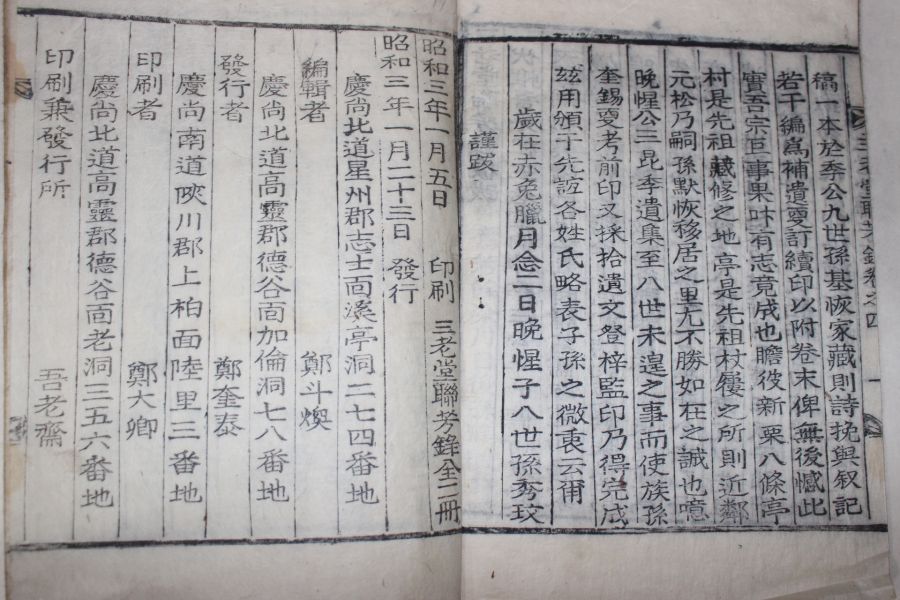 三老堂聯芳錄卷之四
稿一本於季公九世孫基恢家藏則詩挽與叙記
若干編爲補遺更訂續印以附卷末俾無後憾此
實吾宗巨事果叶有志竟成也瞻彼新粟八條亭
村是先祖藏修之地亭是先祖杖屨之所則近鄰
元松乃嗣孫默恢移居之里尤不勝如在之誠也噫
晚惺公三昆季遺集至八世未遑之事而使族孫
奎錫更考前印又採拾遺文登梓監印乃得完成
玆用頒于先誼各姓氏略表子孫之微衷云爾
歲在赤兔臘月念二日晚惺子八世孫秀玟
謹跋
昭和三年一月五日 印刷 三老堂聯芳錄全二冊
昭和三年一月二十三日 發行
慶尙北道星州郡志士面溪亭洞二七四番地
編輯者 鄭斗煥
慶尙北道高靈郡德谷面加倫洞七八番地
發行者 鄭奎泰
慶尙南道陜川郡上柏面陸里三番地
印刷者 鄭大卿
慶尙北道高靈郡德谷面老洞三五六番地
印刷兼發行所 吾老齋